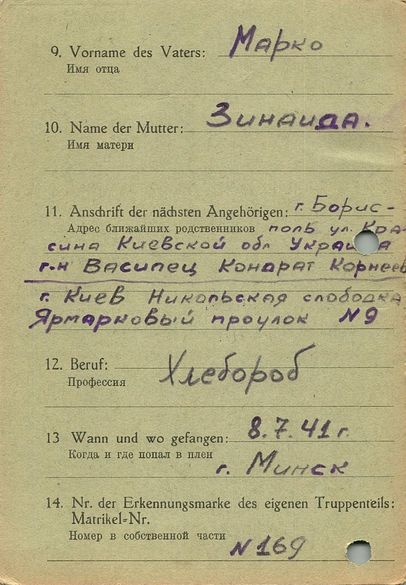 9. Vorname des Vaters: Марко
Имя отца
10. Name der Mutter: Зинаида.
Имя матери
11. Anschrift der nächsten Angehörigen: г. Борис-
Адрес ближайших родственников поль ул. Кра-
сина Киевской обл Украина
г-н Васипец Кондрат Корнеев
г. Киев Никольская слободка
Ярмарковый проулок N9
12. Beruf: Хлебороб
Профессия
13 Wann und wo gefangen: 8.7.41 г.
Когда и где попал в плен
г. Минск
14. Nr. der Erkennungsmarke des eigenen Truppenteils:
Matrikel-Nr.
Номер в собственной части
N 169